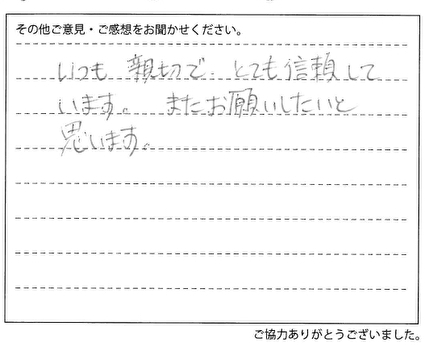 その他ご意見・ご感想をお聞かせください。
いつも 親切で、とても信頼して
います。 またお願いしたいと
思います。
ご協力ありがとうございました。